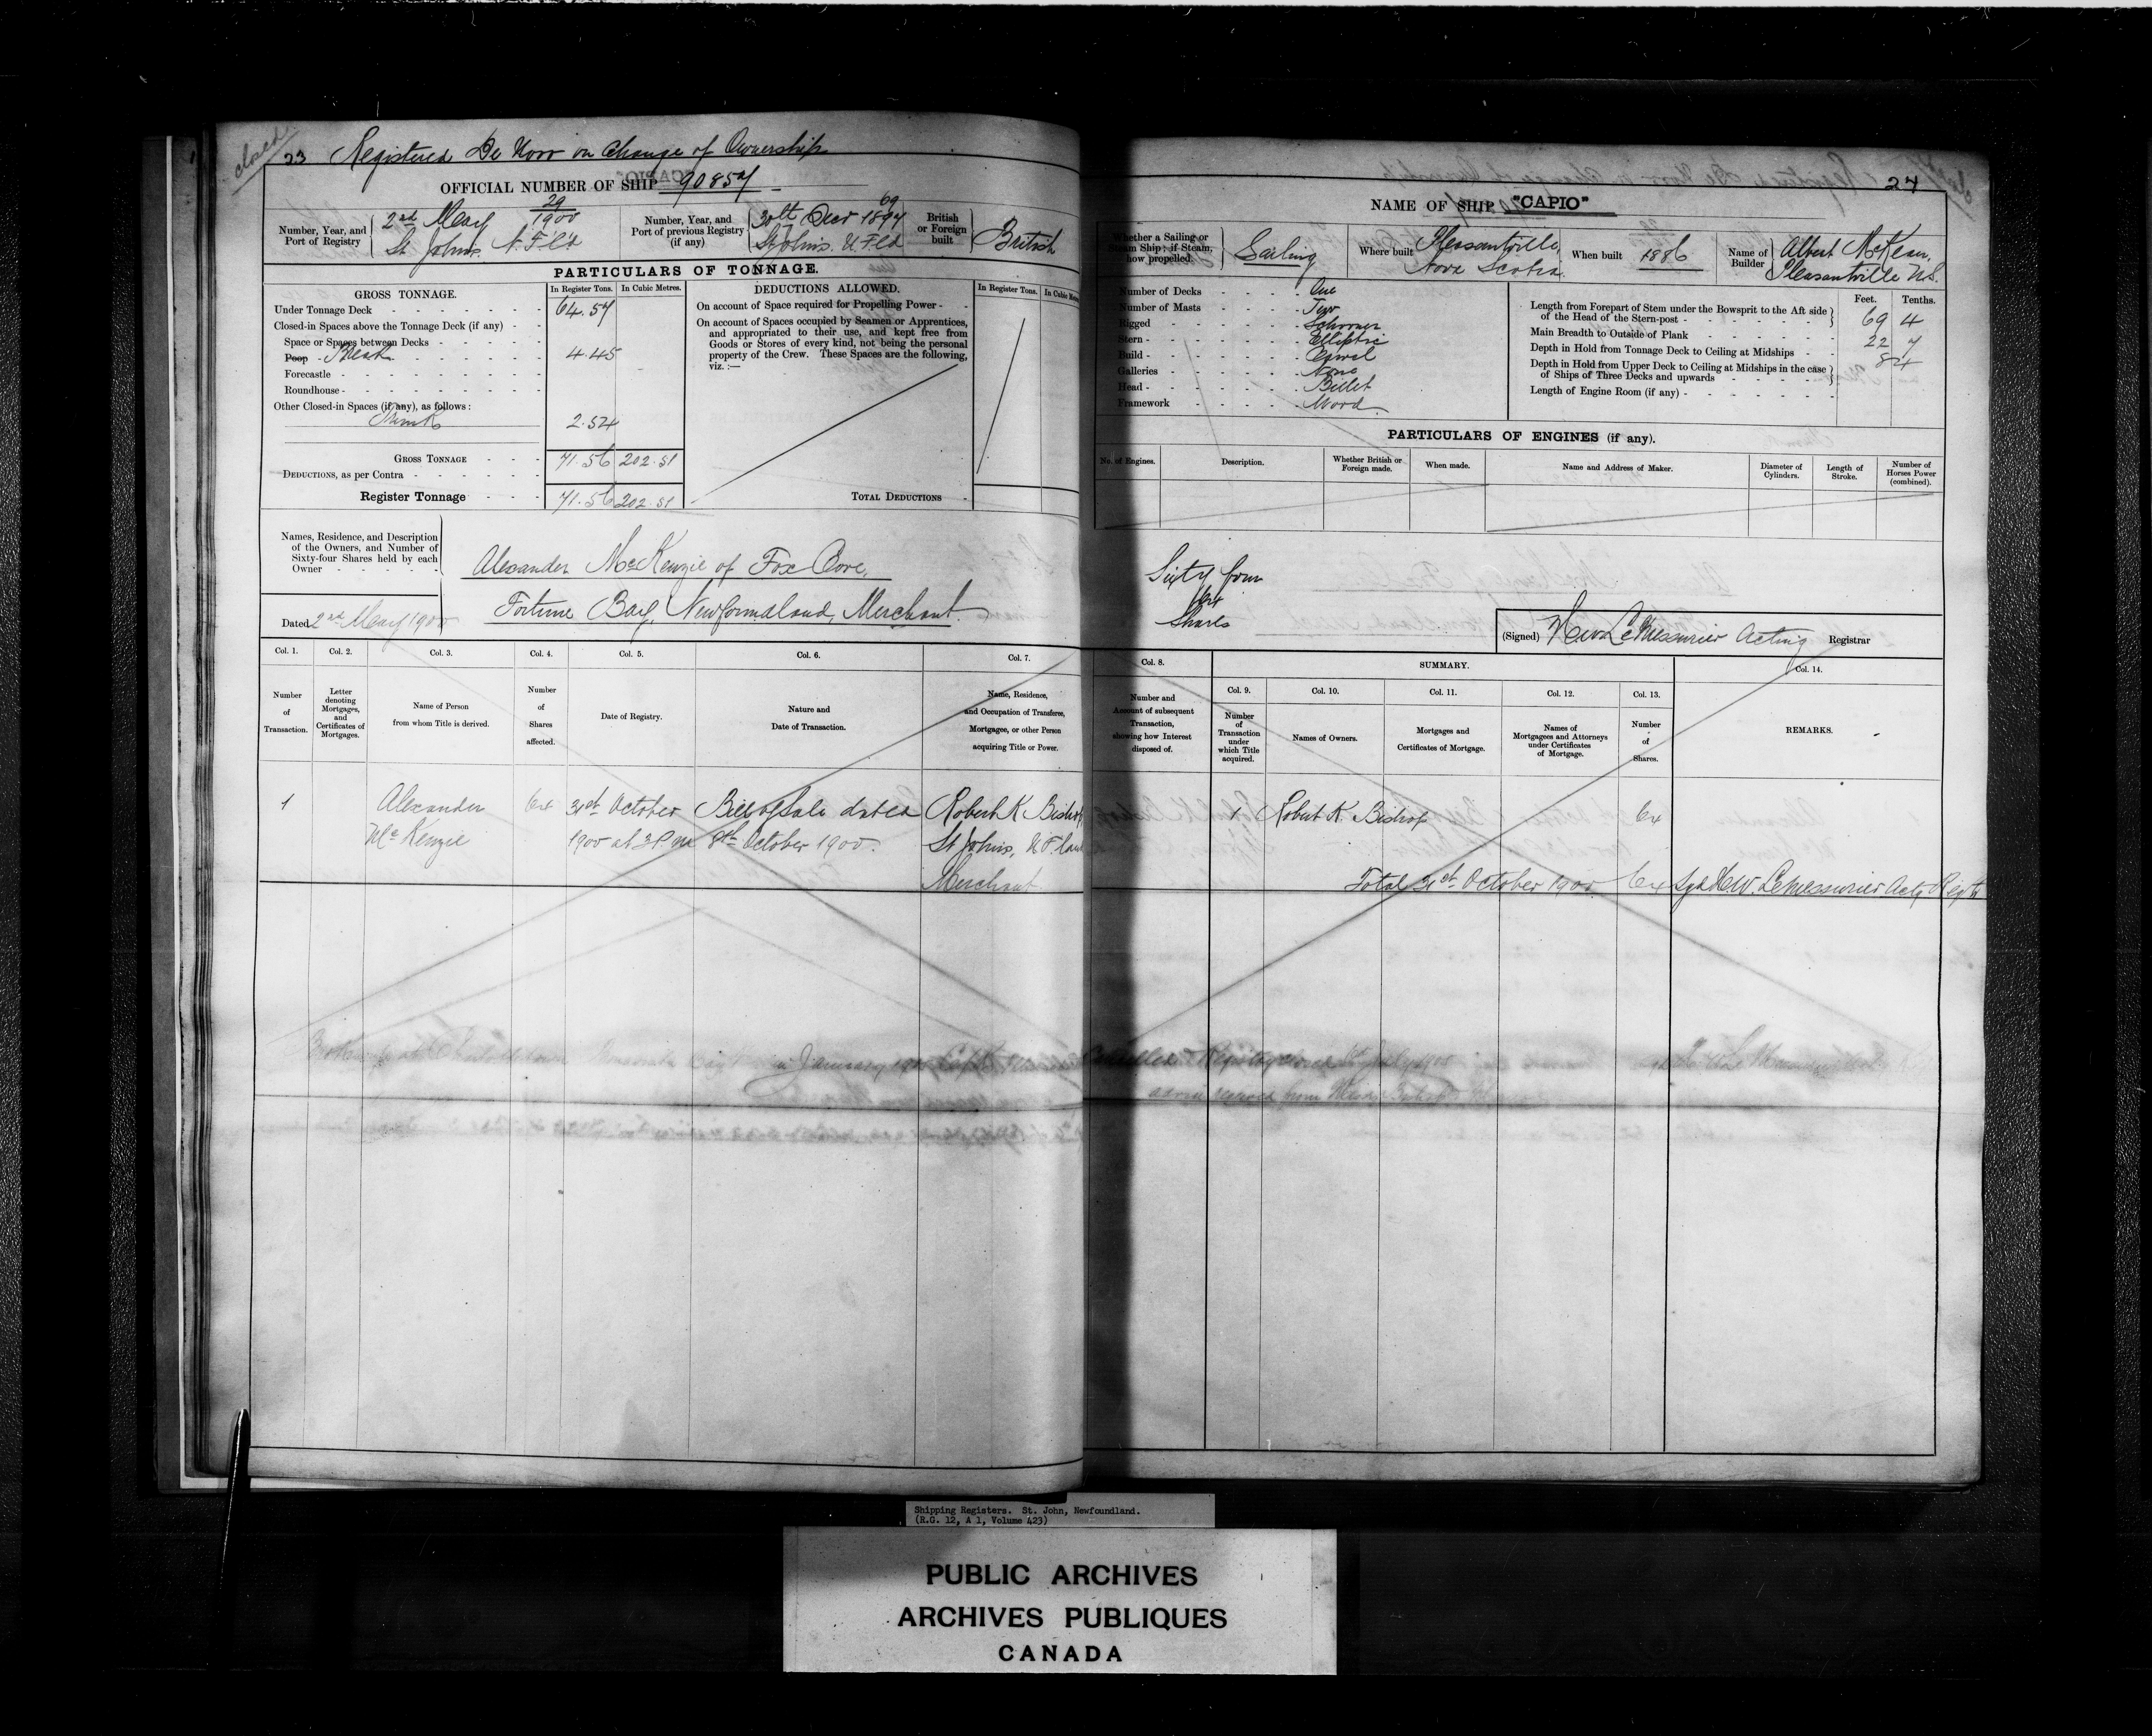 closed
23 Registered De Novo on Change of Ownership
OFFICIAL NUMBER OF SHIP 90857
Number, Year, and Port of Registry
2nd May 29/1900
St Johns. N.F.L'd
Number, Year, and Port of previous Registry (if any)
30th Decr 69/1897
St Johns. N.F.Ld
British or Foreign built
British
PARTICULARS OF TONNAGE.
GROSS TONNAGE.
In Register Tons. In Cubic Metres.
Under Tonnage Deck 64.57
Closed-in Spaces above the Tonnage Deck (if any)
Space or Spaces between Decks
Poop Break 4.45
Forecastle
Roundhouse
Other Closed-in Spaces (if any), as follows:
Trunk 2.54
GROSS TONNAGE 71.56 202.51
DEDUCTIONS, as per Contra
Register Tonnage 71.56 202.51
DEDUCTIONS ALLOWED.
In Register Tons. In Cubic Met
On account of Space required for Propelling Power
On account of Spaces occupied by Seamen or Apprentices,
and appropriated to their use, and kept free from
Goods or Stores of every kind, not being the personal
property of the Crew. These Spaces are the following,
viz. :—
TOTAL DEDUCTIONS
Names, Residence, and Description
of the Owners, and Number of
Sixty-four Shares held by each
Owner
Alexander McKenzie of Fox Cove,
Fortune Bay, Newfoundland, Merchant.
Dated 2nd May 1900
Col. 1. Col. 2. Col. 3. Col. 4. Col. 5. Col. 6. Col. 7.
Number of Transaction.
Letter denoting Mortgages, and Certificates of Mortgages.
Name of Person from whom Title is derived.
Number of Shares affected.
Date of Registry.
Nature and Date of Transaction.
Name, Residence, and Occupation of Transferee, Mortgagee, or other Person acquiring Title or Power.
1 Alexander 64 31st October Bill of Sale dated Robert K Bishop
McKenzie 1900 at 3 P.m 8th October 1900. St Johns, N.F.land
Merchant
in January
24
NAME OF SHIP "CAPIO"
Whether a Sailing or Steam Ship; if Steam, how propelled.
Sailing
Where built
Pleasantville,
Nova Scotia
When built 1886
Name of Builder
Albert McKean,
Pleasantville N.S.
Number of Decks One
Number of Masts Two
Rigged Schooner
Stern Elliptic
Build Carvel
Galleries None
Head Billet
Framework Wood
Feet. Tenths.
Length from Forepart of Stem under the Bowsprit to the Aft side
of the Head of the Stern-post 69 4
Main Breadth to Outside of Plank 22 7
Depth in Hold from Tonnage Deck to Ceiling at Midships 8 4
Depth in Hold from Upper Deck to Ceiling at Midships in the case
of Ships of Three Decks and upwards
Length of Engine Room (if any)
PARTICULARS OF ENGINES (if any).
No. of Engines. Description. Whether British or Foreign made. When made. Name and Address of Maker. Diameter of Cylinders. Length of Stroke. Number of Horses Power (combined).
Sixty four
64
Shares
(Signed) H W LeMessurier Acting Registrar
Col. 8. SUMMARY. Col. 14.
Col. 9. Col. 10. Col. 11. Col. 12. Col. 13.
Number and Account of subsequent Transaction, showing how Interest disposed of.
Number of Transaction under which Title acquired.
Names of Owners.
Mortgages and Certificates of Mortgage.
Names of Mortgagees and Attorneys under Certificates of Mortgage.
Number of Shares.
REMARKS.
1 Robert K Bishop 64
Total 31st October 1900 64 Sgd H W. LeMessurier Actg Regtr
advice received from
Shipping Registers. St. John, Newfoundland.
(R.G. 12, A 1, Volume 423)
PUBLIC ARCHIVES
ARCHIVES PUBLIQUES
CANADA